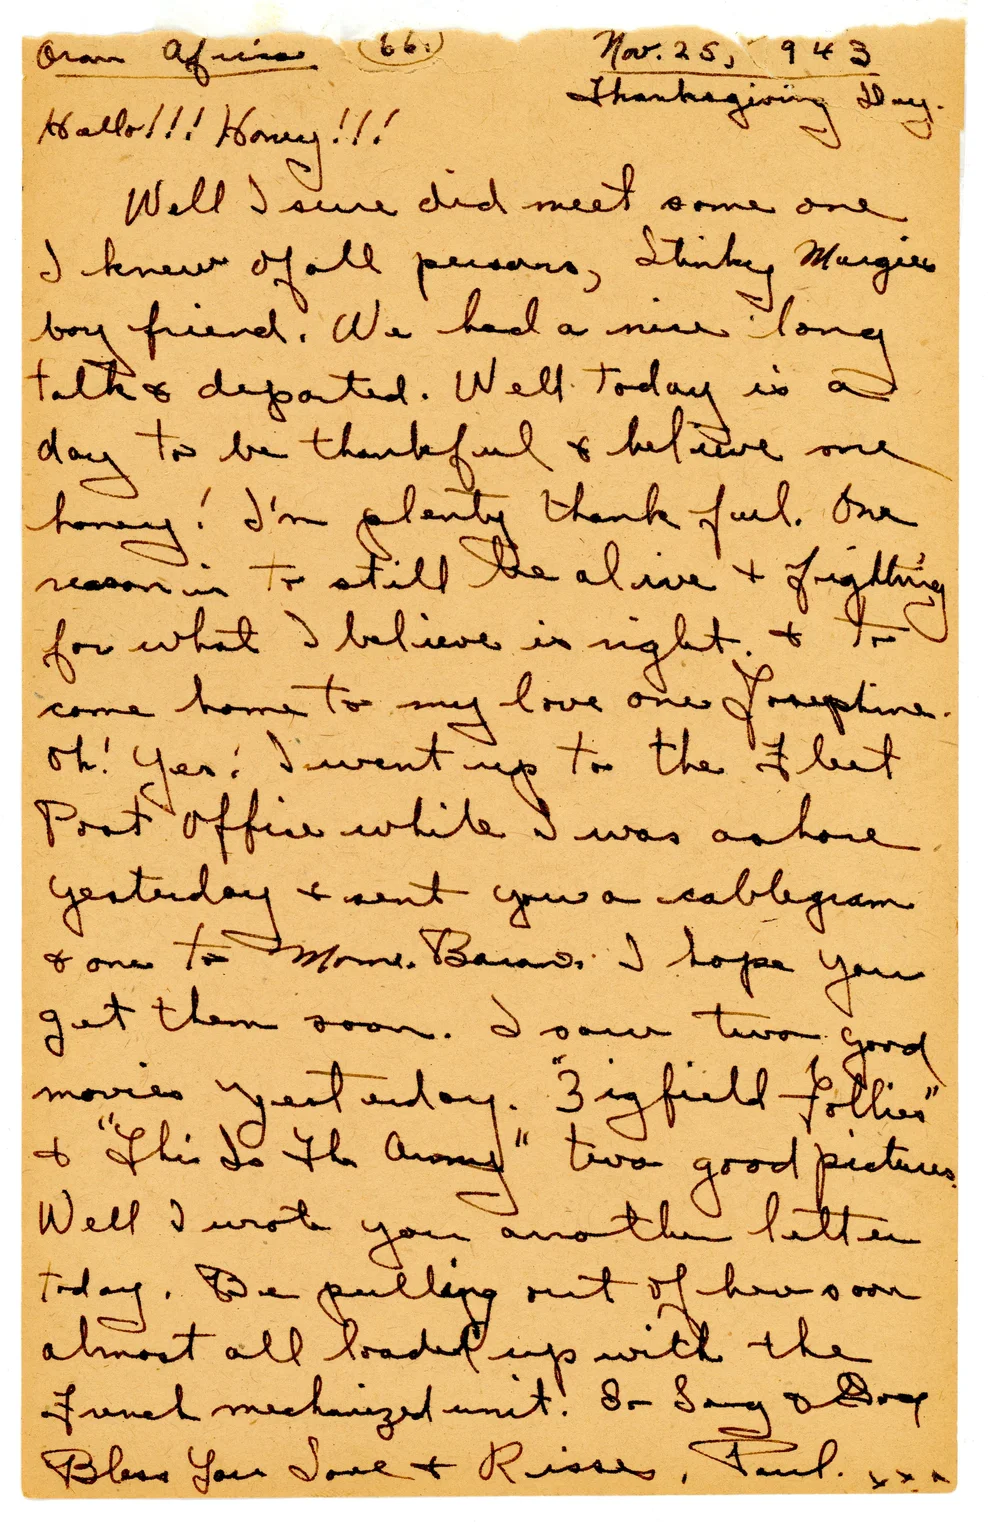 Oran Africa (66.) Nov. 25, 943
Thanksgiving Day.
Hallo!!! Honey!!!
Well I sure did meet some one
I knew of all persons, Stinky Margies
boy friend. We had a nice long
talk & departed. Well today is a
day to be thankful & believe me
honey! I'm plenty thank ful. One
reason is to still be alive + fighting
for what I believe is right. & to
come home to my love one Josephine.
Oh! Yes! I went up to the Fleet
Post Office while I was ashore
yesterday + sent you a cablegram
& one to Mom. I hope you
get them soon. I saw two good
movies yesterday. "Zigfield Follies"
+ "This Is Th Army" two good pictures.
Well I wrote you another letter
today. Be pulling out of here soon
almost all loaded up with the
French mechanized unit. So Long & God
Bless You Love + Kisses, Paul. x x x